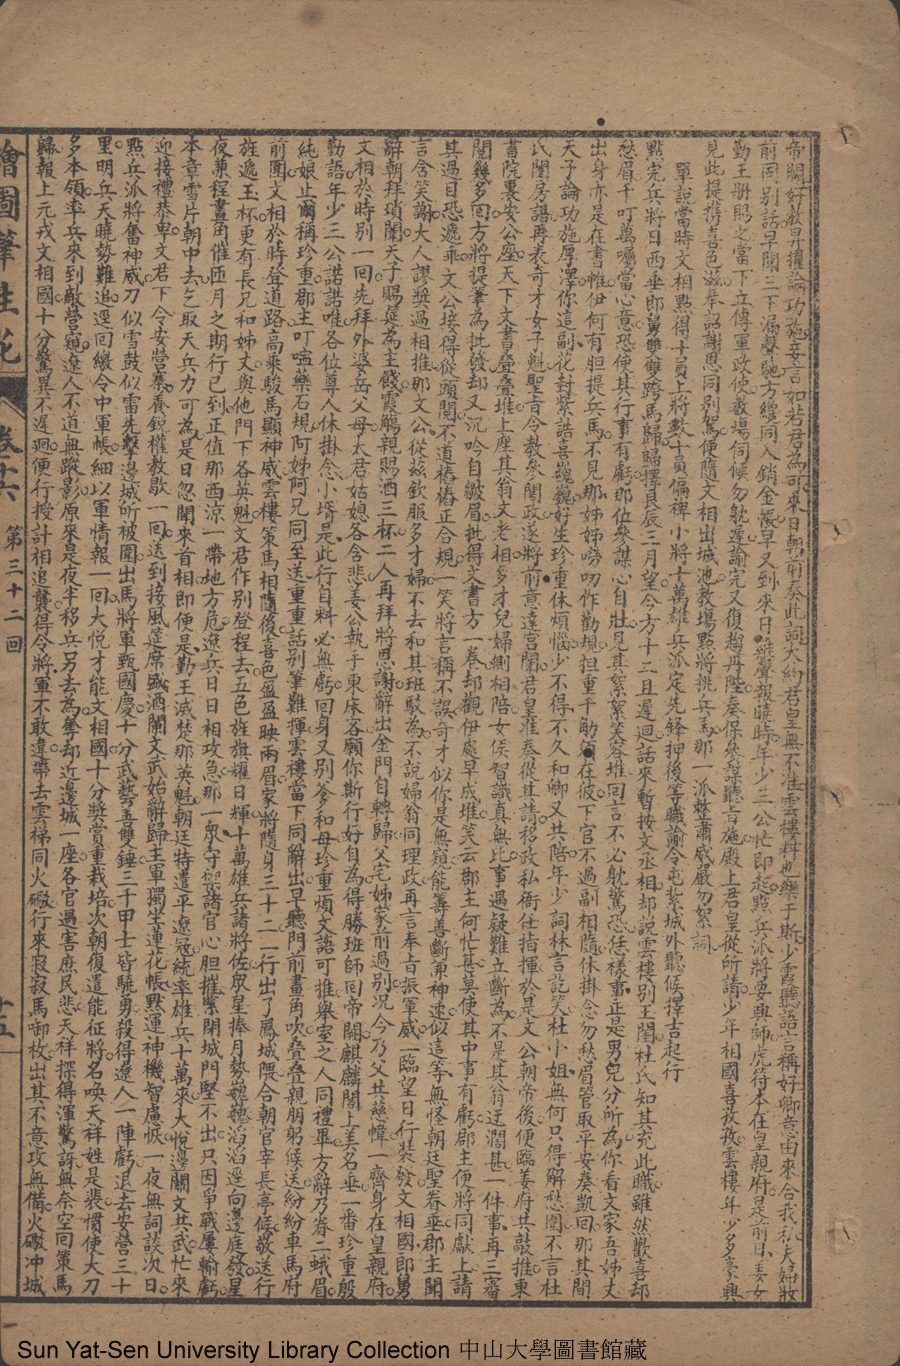 帝闕好教昇攢論功施妄言如若君為可來日朝前奏此詞大約君皇無不准雲樓科也藥于斯少霞聽語言稱好卿意由來合我私夫婦妝
前同別話早聞三下漏聲馳方纔同入銷金帳早又到來日雞聲報曉時年少三公忙即起點兵派將要興師虎符本在皇親府是前日姜女
勤王册賜之當下立傳軍政使教塲伺候勿躭遲諭完又復趨丹陛奏保叅謀聽旨施殿上君皇從所請少年相國喜孜孜雲樓年少多豪興
見此提携喜色滋拳詔謝恩同別駕便隨文相出城池教塲點將挑兵馬那一派整肅威嚴勿絮詞
單說當時文相點得十員上將數十員偏裨小將十萬雄兵派定先鋒押後等職諭令屯紮城外聽候擇吉起行
點完兵將日西垂郎舅雙雙跨馬歸歸擇良辰三月望今方十二且遲迴話來暫按文丞相却說雲樓別王閨杜氏知其充此職雖然歡喜却
愁眉千叮萬囑當心意恐使其行事有虧那位叅謀心自壯見其絮絮笑容堆回言不必躭驚恐恁樣事正是男兒分所為你看文家吾姊丈
出身亦是在書帷伊何有胆提兵馬不見那姊姊嘮叨作勸規担重千觔在彼下官不過副相隨休掛念勿愁眉管取平安奏凱回那其間
天子論功施厚澤你這副花封紫誥喜巍巍好生珍重休煩惱少不得不久和卿又共陪年少詞林言說笑杜小姐無何只得解愁圍不言杜
氏閨房語再表奇才女子魁聖旨令教叅閫政遂將前意達宮闈君皇准奏從其請移政私衙任指揮於是文公朝帝後便臨姜府共敲推東
書院裏安公座天下文書疊疊堆上座其翁文老相多才兒婦側相陪女保智識真無比事遇疑難立斷為不是其翁迂濶甚一件事再三審
閱幾多回方將提筆為批發却又沉吟自皺眉批得文書方一卷却觀伊處早成堆笑云郡主何忙甚莫使其中事有虧郡主便將同獻上請
其過目恐遞乖文公接得從頭閱不道樁樁正合規一笑將言稱不誤奇才似你是無窺能籌善斷兼神速似這等無怪朝廷聖眷垂郡主聞
言含笑謝大人謬獎過相推那文公從茲欽服多才婦不去和其班駁為不說婦翁同理政再言奉旨振軍威一臨望日行裝發文相國郎舅
辭朝拜瑣闈天子賜筵為主餞霞觴親賜酒三杯二人再拜將恩謝辭出金門自轉歸父宅姊家前過別況今乃父共慈幃一齊身在皇親府
文相於時別一回先拜外婆岳父母太君姑媳各含悲姜公執手東床客願你斯行好自為得勝班師回帝闕麒麟閣上美名垂一番珍重殷
勤語年少三公諾諾唯各位尊人休掛念小壻是此行自料必無虧回身又別爹和母珍重煩文語可推舉室之人同禮畢方辭乃眷二蛾眉
純娘止爾稱珍重郡主叮嚀藥石規阿姊阿兄同至送重重話別筆難揮雲樓當下同辭出早聽門前畫角吹疊疊親朋躬候送紛紛車馬府
前圍文相於時登道路高乘駿馬顯神威雲樓策馬相隨後喜色盈盈映兩眉家將隨身三十二一行出了鳳城隈合朝官宰長亭候敬送行
旌遞玉杯更有長兄和姊丈與他門下各英魁文君作別登程去五色旌旗耀日輝十萬雄兵諸將佐衆皇捧月勢巍巍滔滔逕向邊庭發星
夜兼程晝角催匝月之期行已到正值那西涼一帶地方危遼兵日日相攻急那一衆守禦諸官心胆摧緊閉城門堅不出只因爭戰屢輸虧
本章雪片朝中去乞取天兵力可為是日忽聞來首相即便是勤王滅楚那英魁朝廷特遣平遼寇統率雄兵十萬來大悅邊關文共武忙來
迎接禮恭卑文君下令安營寨養鋭權教歇一回送到接風筵席盛酒闌文武始辭歸主軍獨坐蓮花帳默運神機智慮恢一夜無詞談次日
點兵派將奮神威刀似雪鼓似雷先擊邊城所被圍出馬將軍甄國慶十分武藝善雙錘三千甲士皆驍勇殺得遼人一陣虧退去安營三十
里明兵天曉勢難追逕回繳令中軍帳細以軍情報一回大悅才能文相國十分獎賞重栽培次朝復遣能征將名喚天祥姓是裴慣使大刀
多本領率兵來到敵營窺遼人不道無蹤影原來是夜半移兵另去為奪却近邊城一座各官遇害庶民悲天祥探得運驚訝無奈空回策馬
歸報上元戎文相國十分驚異不遲迴便行授計相追襲得令將軍不敢違帶去雲梯同火礮行來寂寂馬啣枚出其不意攻無備火礮冲城
繪圖筆生花 卷十六 第三十二回 十五
Sun Yat-Sen University Library Collection 中山大學圖書館藏